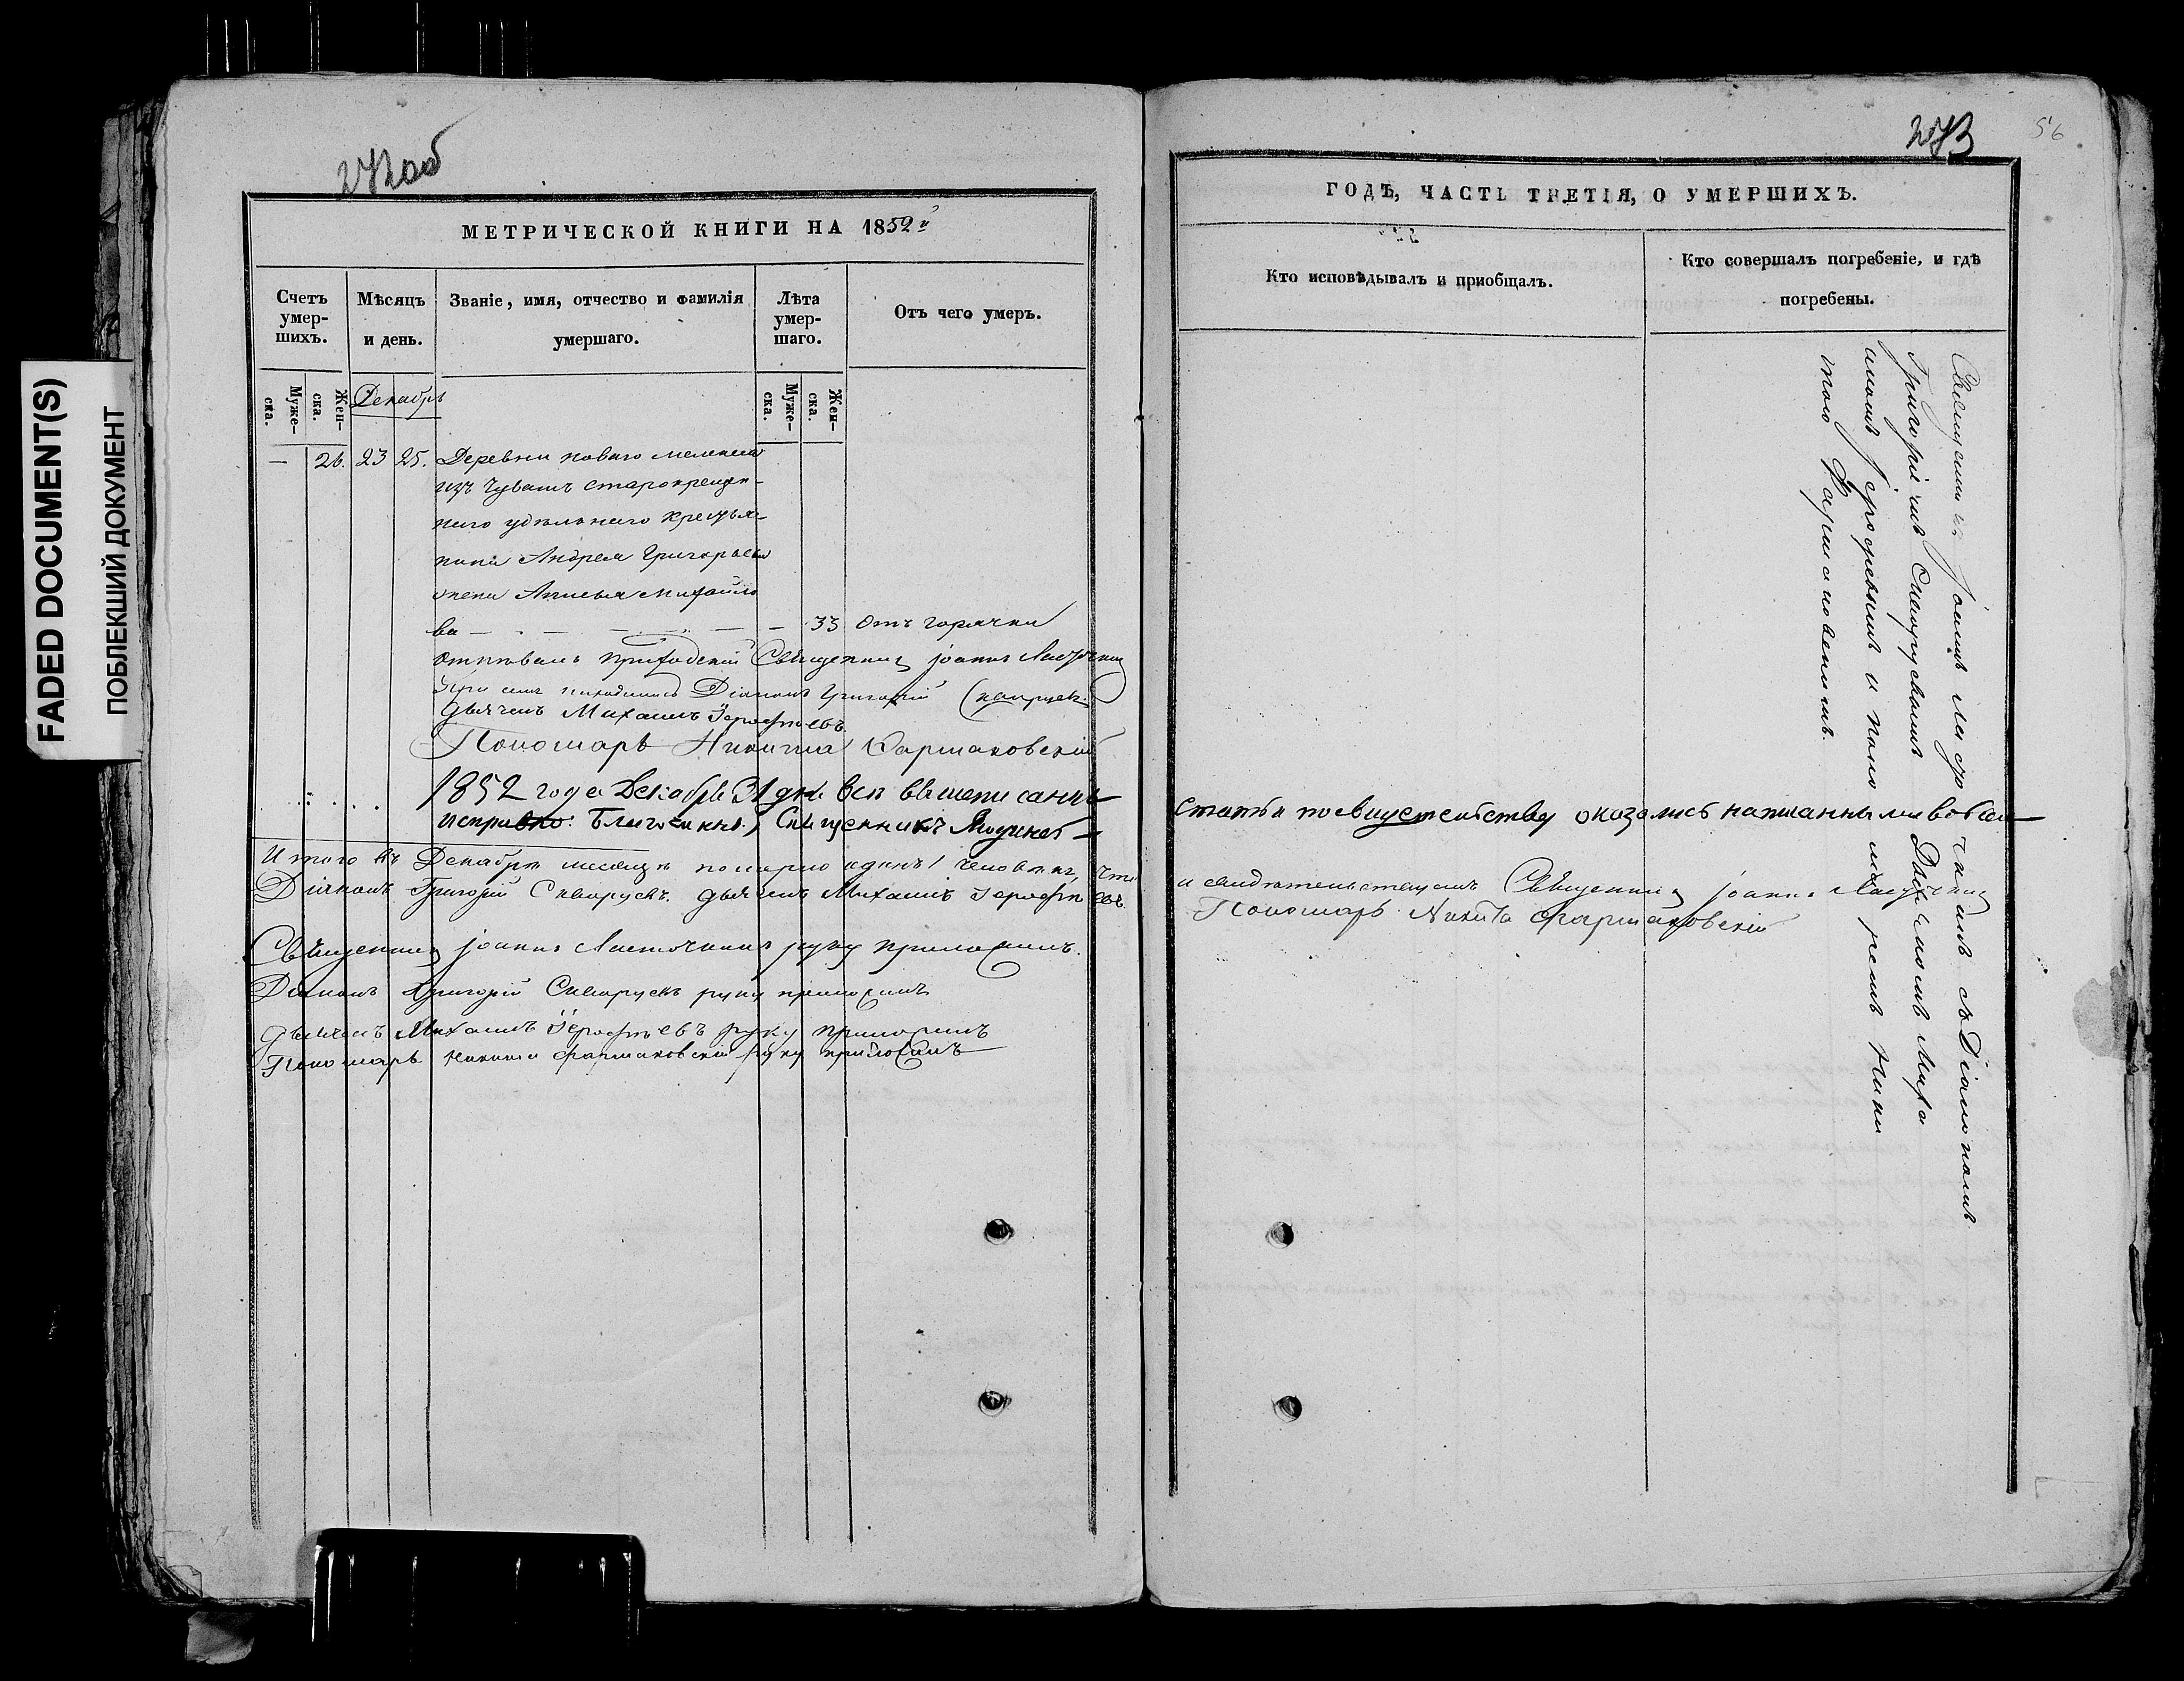 FADED DOCUMENT(S)
ПОБЛЕКШИЙ ДОКУМЕНТ
272об
МЕТРИЧЕСКОЙ КНИГИ НА 1852й
Счетъ умер-шихъ.
Мѣсяцъ и день.
Званіе, имя, отчество и фамилія умершаго.
Лѣта умер-шаго.
Отъ чего умеръ.
Муже-ска.
Жен-ска.
Декабрь
Муже-ска.
Жен-ска.
— 26. 23 25. Деревни Новаго
изъ Чувашъ старокрещен-
наго удѣльнаго крестья-
нина Андрея Григорьева
жена Михайло
ва — — — — 33 отъ горячки
отпѣвалъ приходскій Священникъ Іоаннъ Ласточкинъ
При семъ находились Діаконъ Григорій
Дьячекъ Михаилъ Іерофѣевъ.
Пономарь Никита Фармаковскій
1852 года Декабря 31 дня всѣ вышеписанныя
исправно. Благочинный Священникъ
Итого въ Декабрѣ мѣсяцѣ померло одинъ 1 человѣкъ, что
Діаконъ Григорій Скворцевъ. дьячекъ Михаилъ Іерофѣевъ.
Священникъ Іоаннъ Ласточкинъ руку приложилъ.
Діаконъ Григорій Скворцевъ руку приложилъ
дьячекъ Михаилъ Іерофѣевъ руку приложилъ
Пономарь Никита Фармаковскій руку приложилъ
273
56
ГОДѢ, ЧАСТЬ ТРЕТІЯ, О УМЕРШИХЪ.
Кто исповѣдывалъ и приобщалъ.
Кто совершалъ погребеніе, и гдѣ
погребены.
Священникъ Іоаннъ Ласточкинъ съ Діакономъ
Григоріемъ Скворцевымъ Дьячкомъ Миха
иломъ Іерофѣевымъ и пономаремъ Ники
тою Фармаковскимъ.
статьи по свидетельству оказались написанными во всемъ
и свидѣтельствуемъ Священникъ Іоаннъ Ласточкинъ
Пономарь Никита Фармаковскій